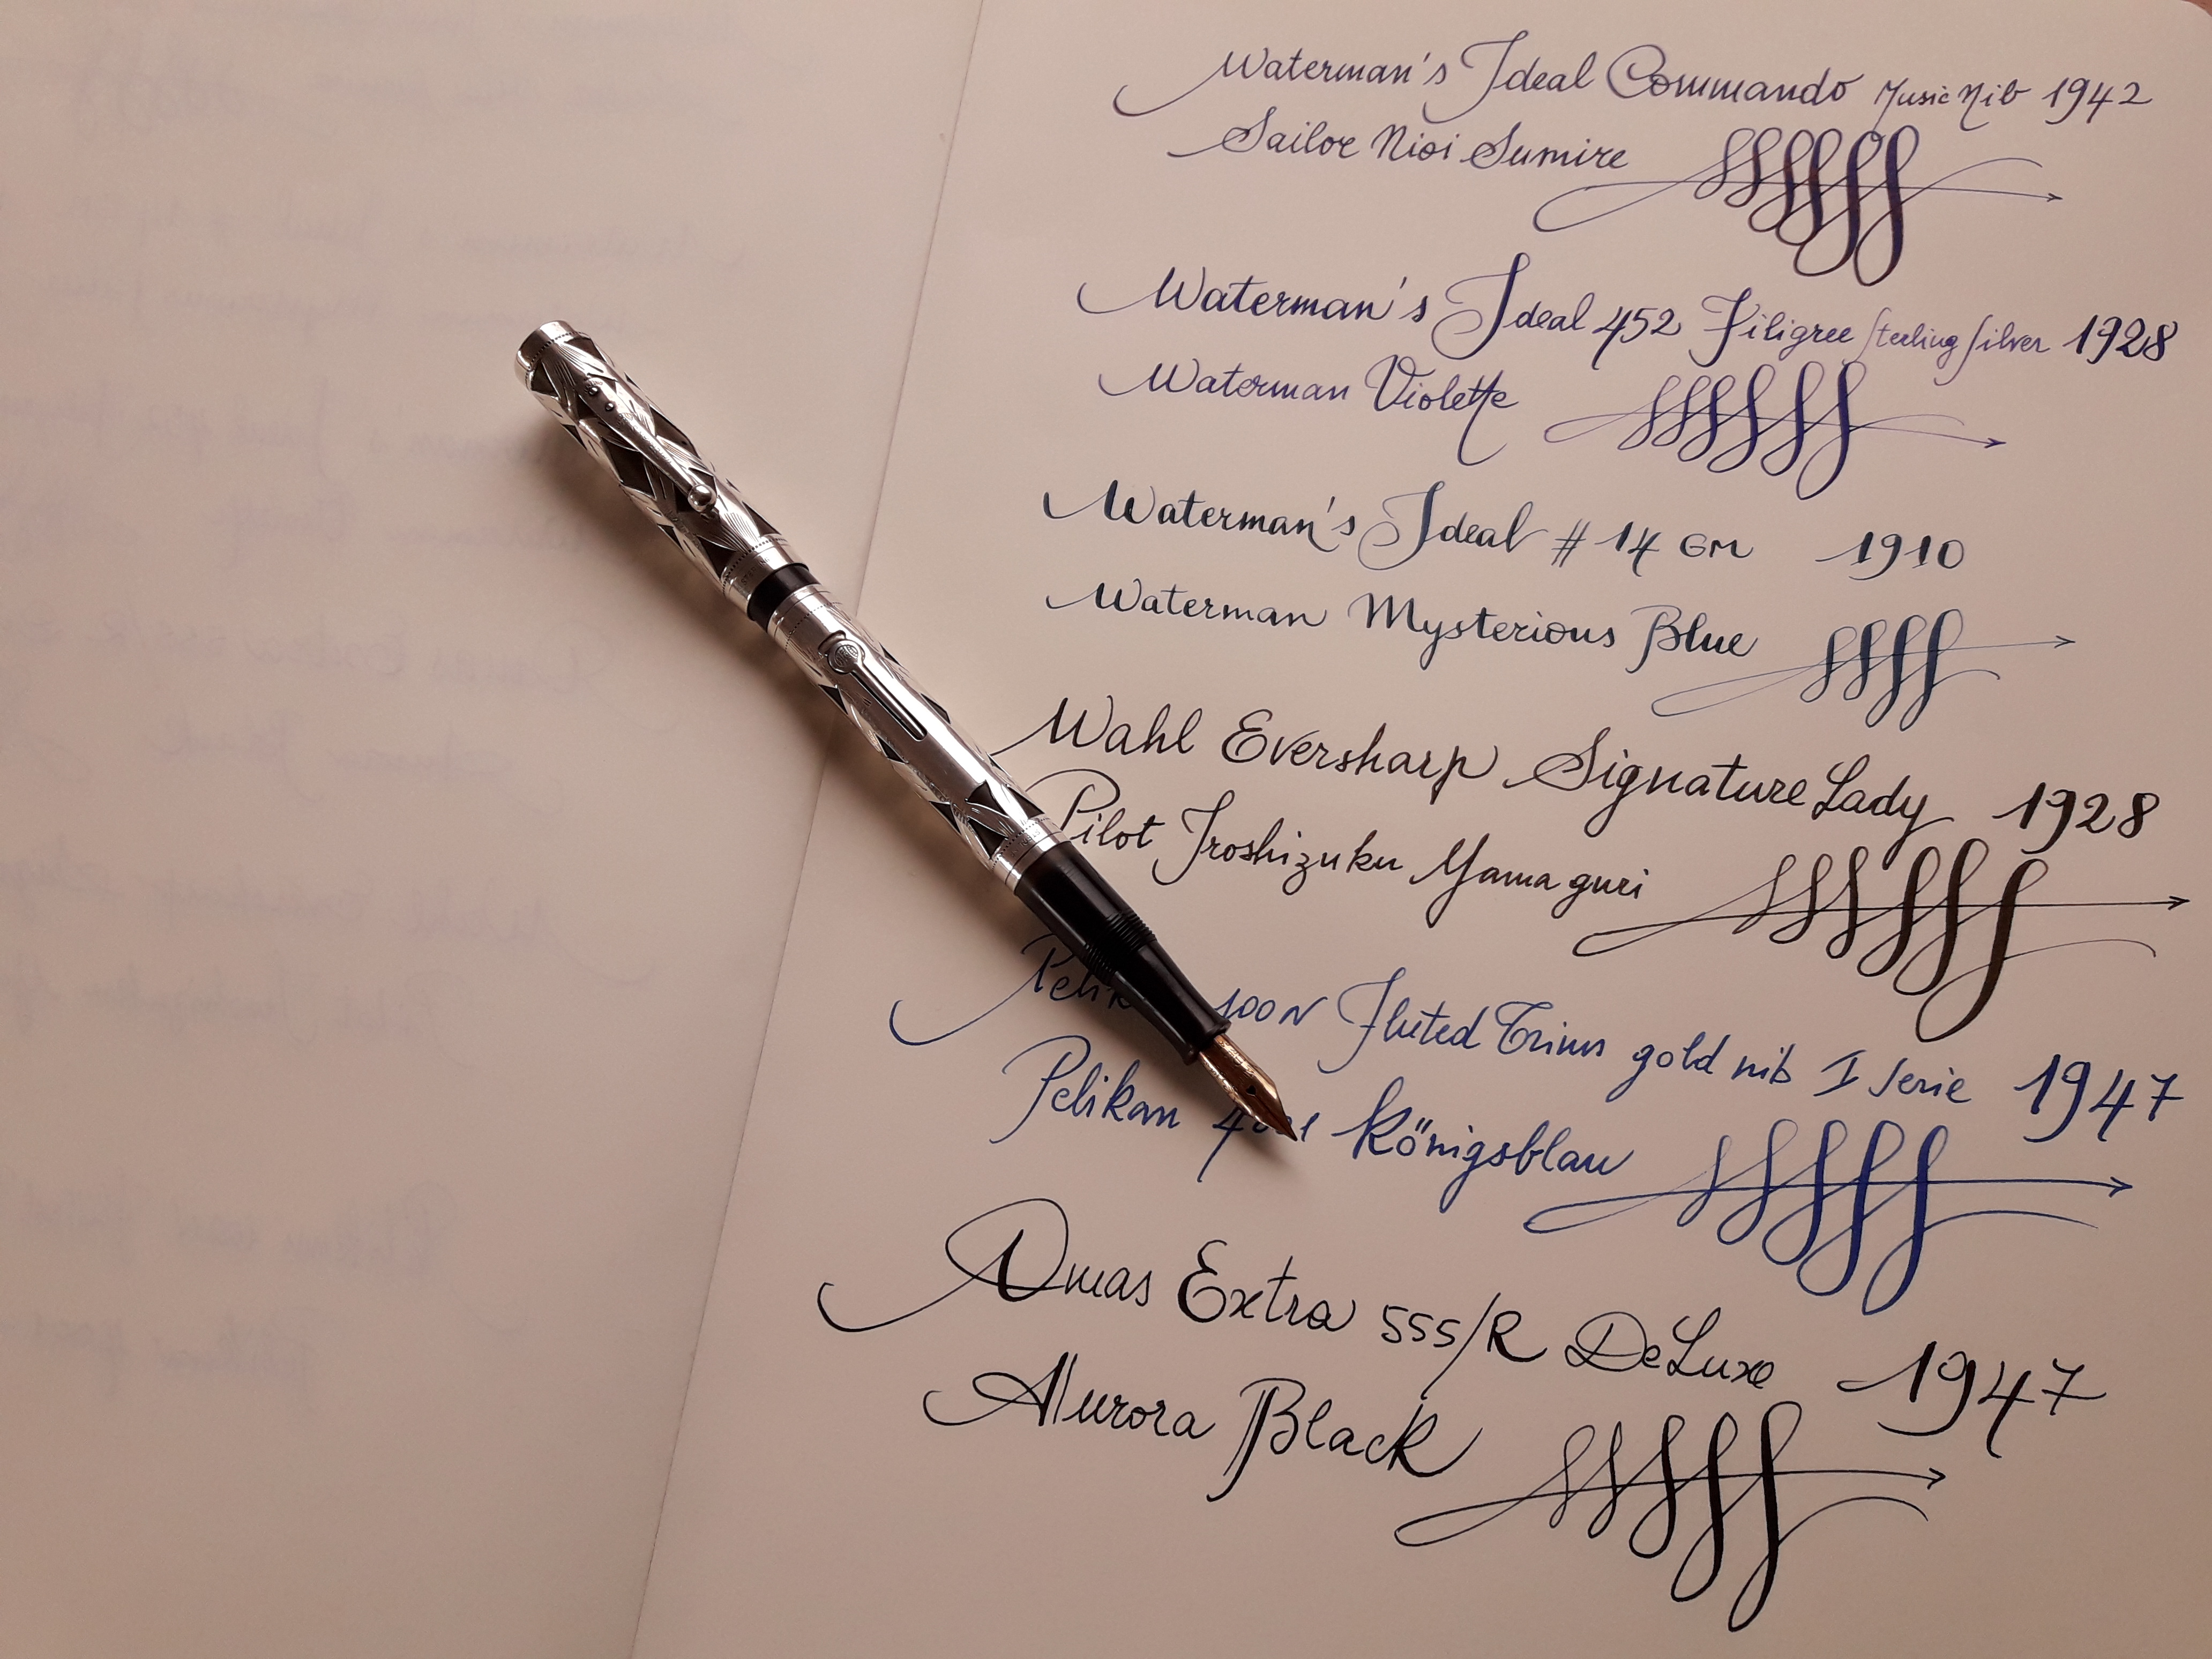 Waterman's Ideal Commando Music Nib 1942
Sailor Nioi Sumire
Waterman's Ideal 452 Filigree Sterling Silver 1928
Waterman Violette
Waterman's Ideal # 14 GM 1910
Waterman Mysterious Blue
Wahl Eversharp Signature Lady 1928
Pilot Iroshizuku Yamaguri
Pelik 100N Fluted Trims gold nib I serie 1947
Pelikan 4001 Königsblau
Omas Extra 555/R DeLuxe 1947
Aurora Black